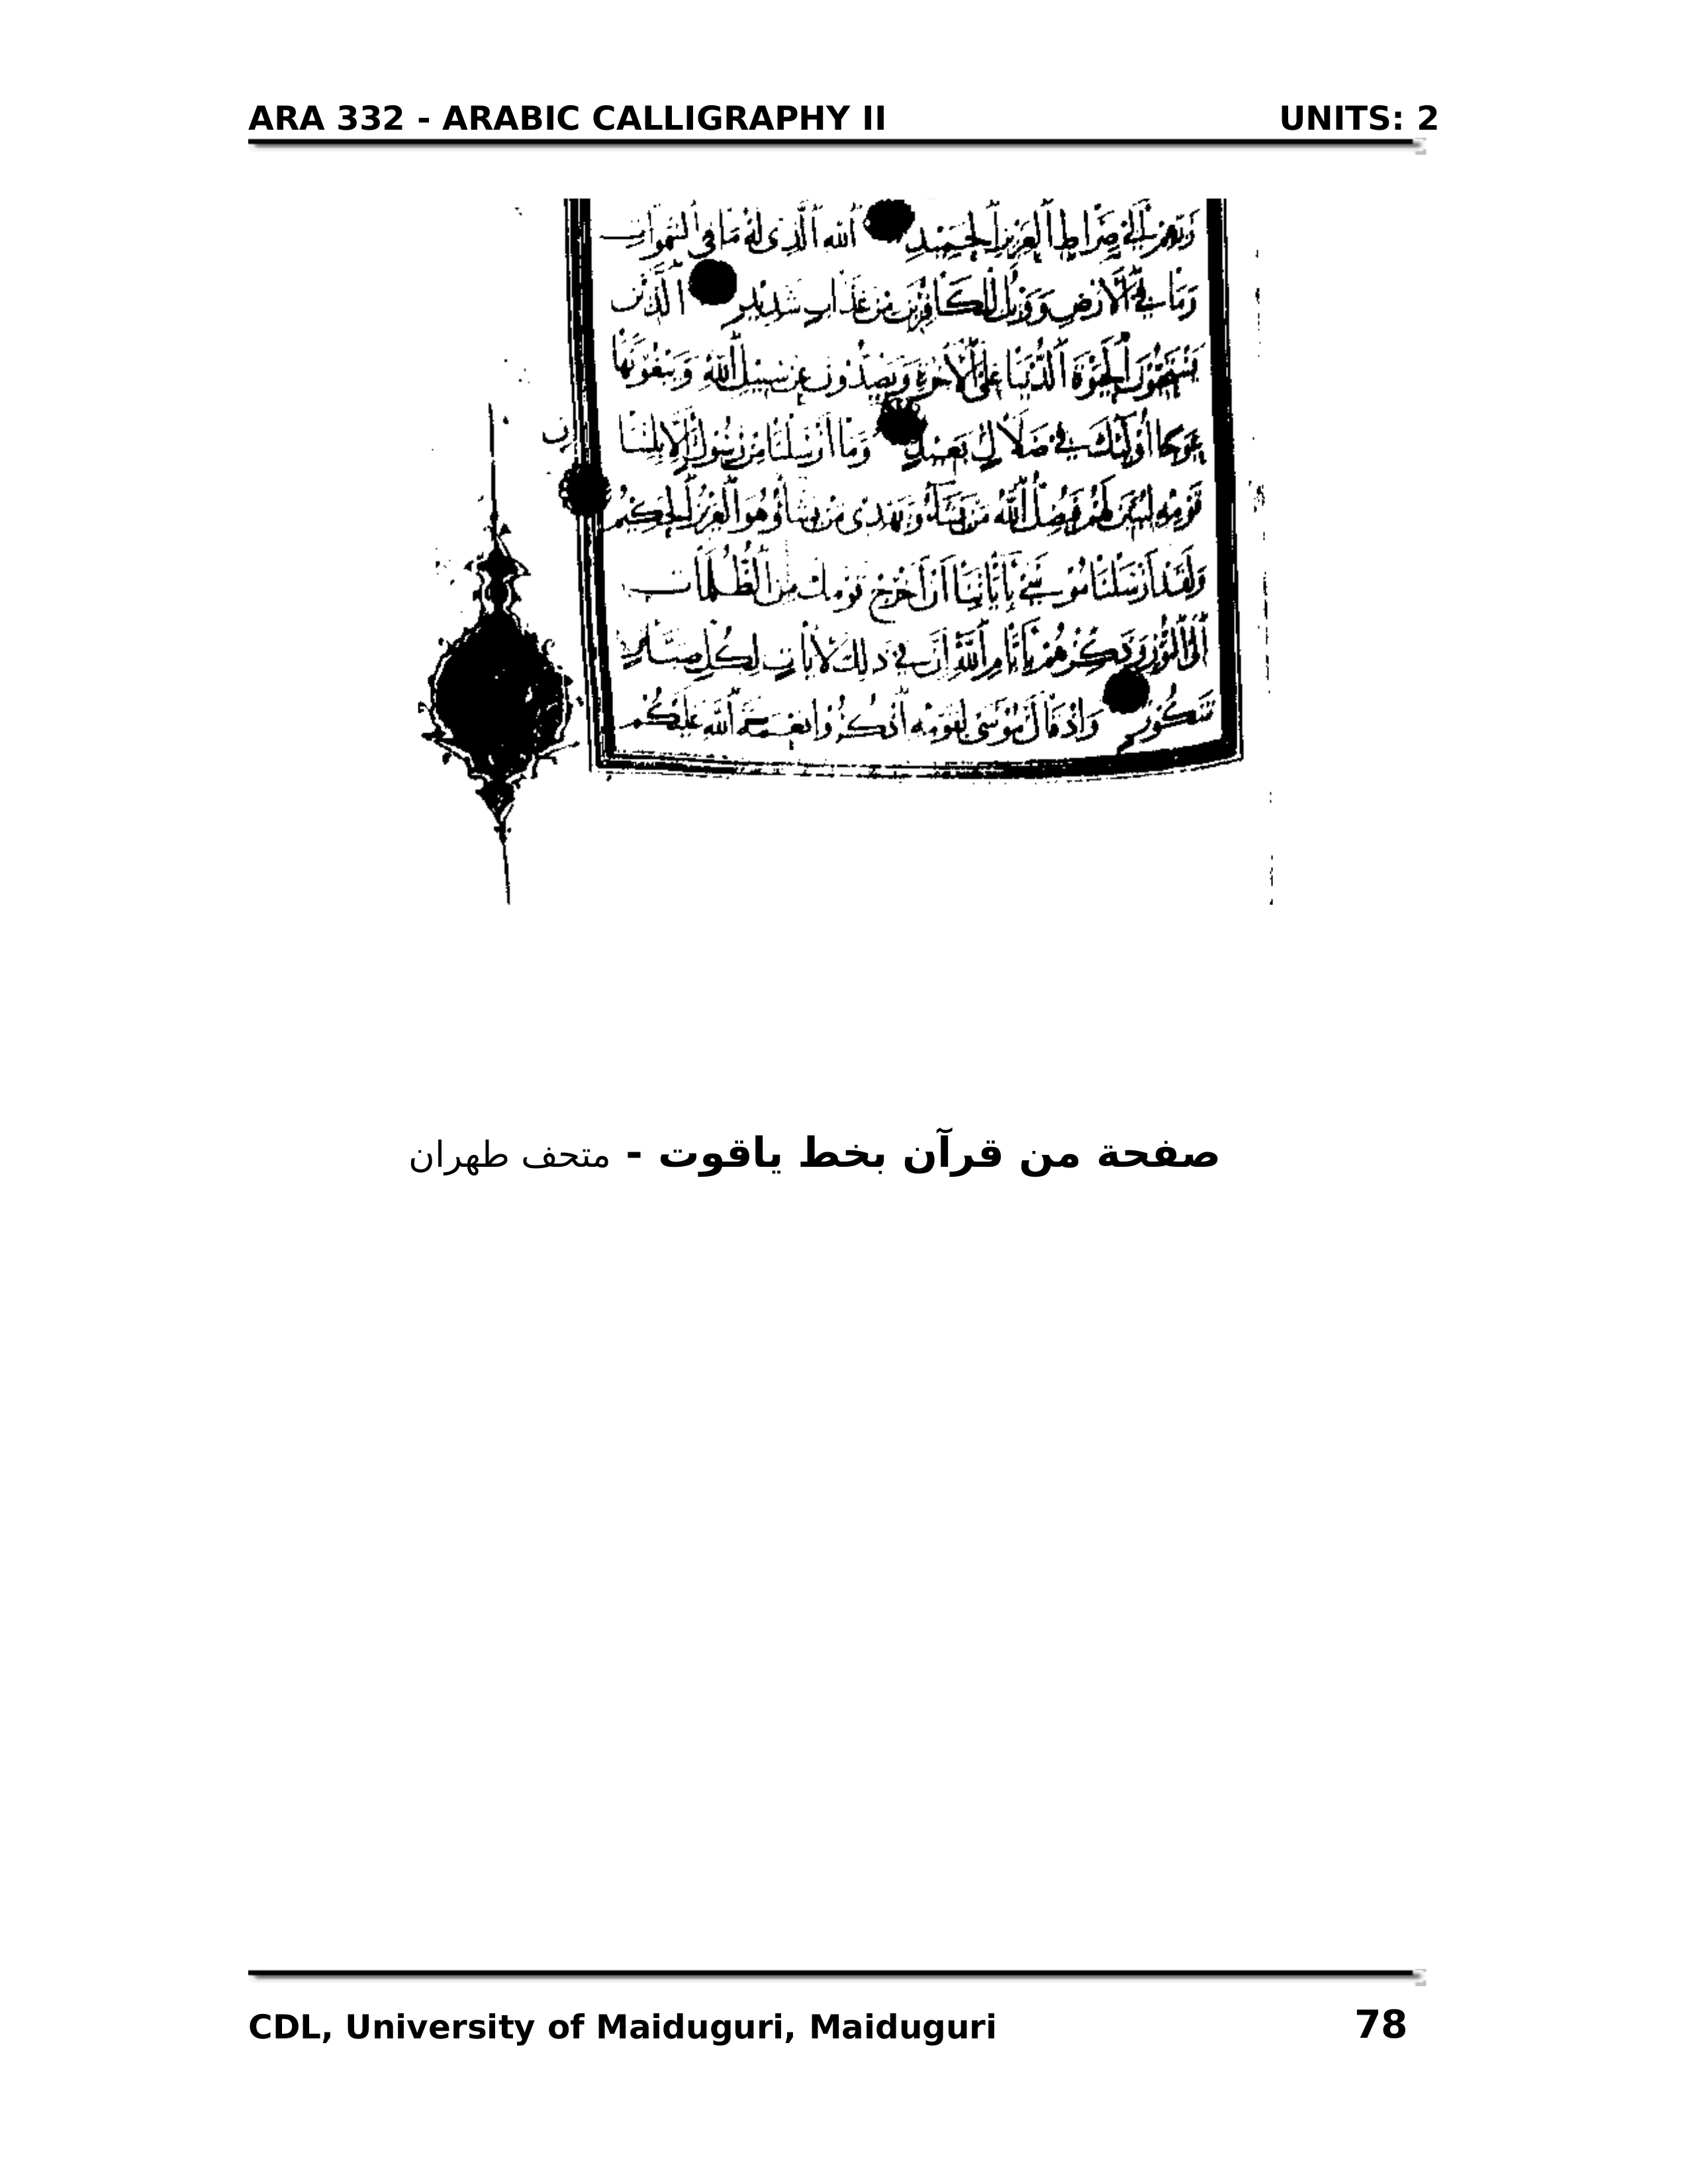 ARA 332 - ARABIC CALLIGRAPHY II UNITS: 2
ربهم إلى صراط العزيز الحميد الله الذي له ما في السموات
وما في الأرض وويل للكافرين من عذاب شديد الذين
يستحبون الحيوة الدنيا على الآخرة ويصدون عن سبيل الله ويبغونها
عوجا أولئك في ضلال بعيد وما أرسلنا من رسول إلا بلسان
قومه ليبين لهم فيضل الله من يشاء ويهدي من يشاء وهو العزيز الحكيم
ولقد أرسلنا موسى بآياتنا أن أخرج قومك من الظلمات
إلى النور وذكرهم بأيام الله إن في ذلك لآيات لكل صبار
شكور وإذ قال موسى لقومه اذكروا نعمة الله عليكم
صفحة من قرآن بخط ياقوت - متحف طهران
CDL, University of Maiduguri, Maiduguri 78